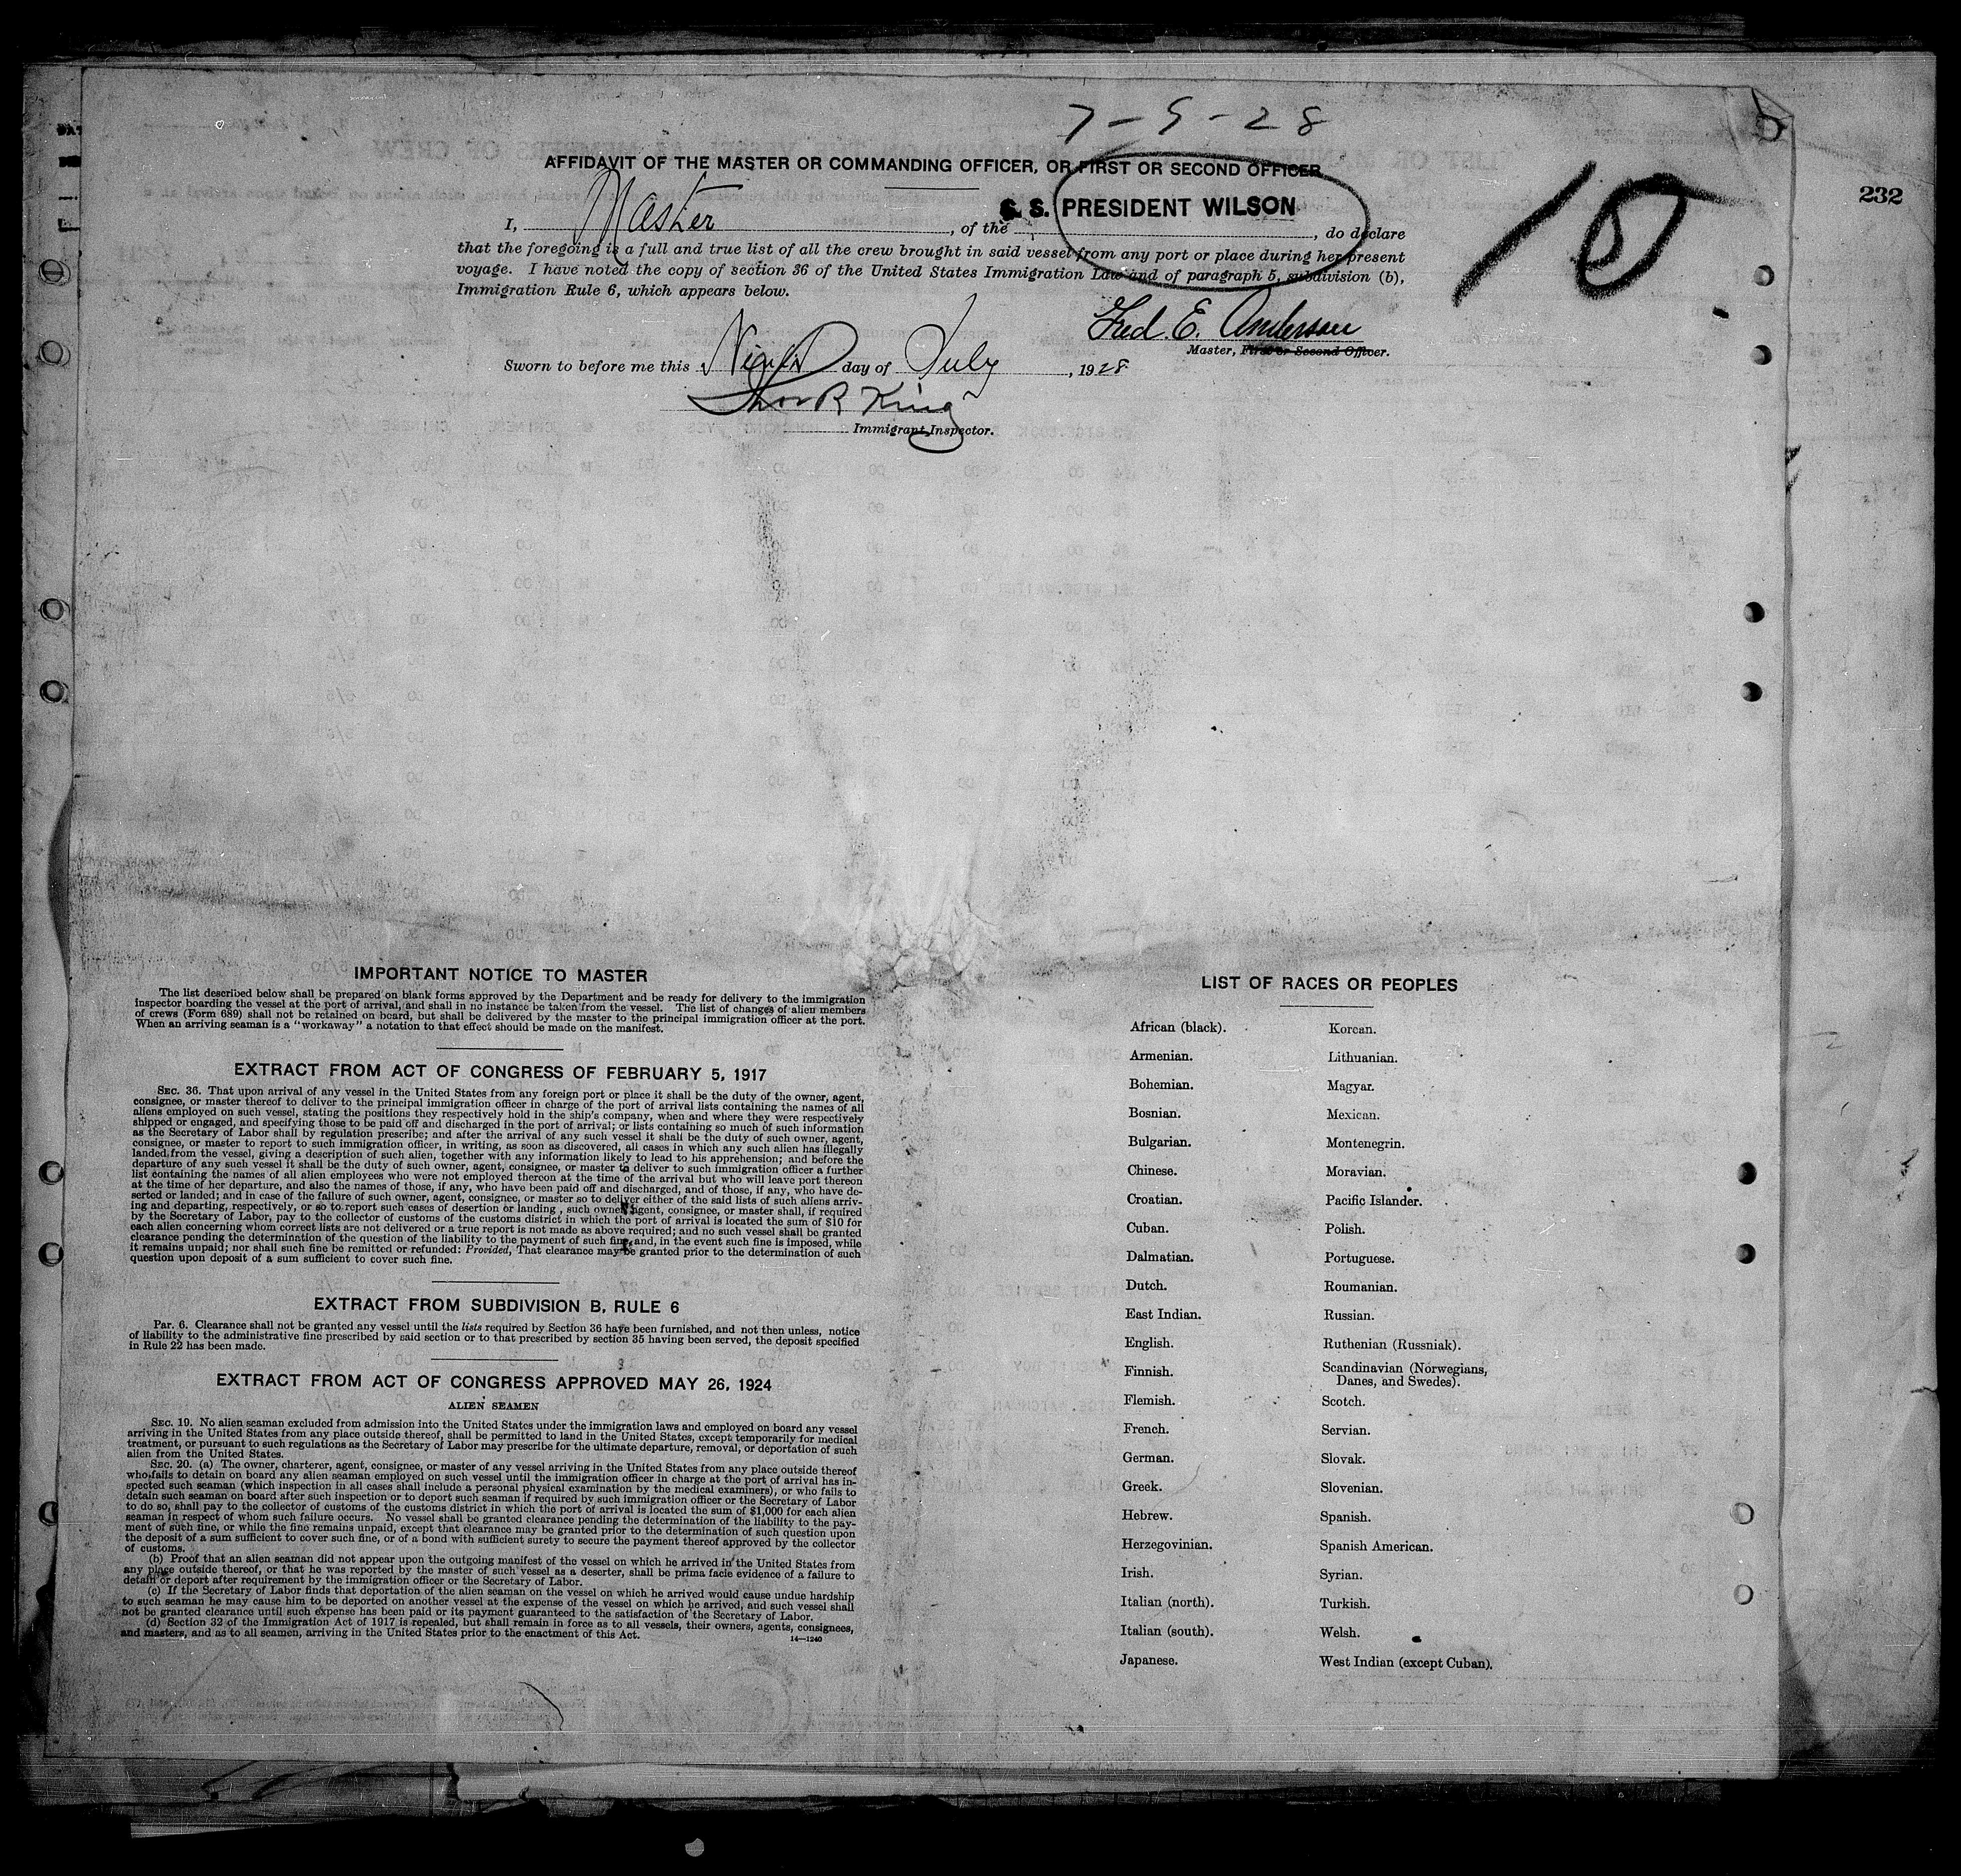 7-9-28
AFFIDAVIT OF THE MASTER OR COMMANDING OFFICER, OR FIRST OR SECOND OFFICER
10
232
I, Master, of the S. S. PRESIDENT WILSON, do declare
that the foregoing is a full and true list of all the crew brought in said vessel from any port or place during her present
voyage. I have noted the copy of section 36 of the United States Immigration Law and of paragraph 5, subdivision (b),
Immigration Rule 6, which appears below.
Fred. E. Anderson
Master, First or Second Officer.
Sworn to before me this Ninth day of July, 1928
King
Immigrant Inspector.
IMPORTANT NOTICE TO MASTER
The list described below shall be prepared on blank forms approved by the Department and be ready for delivery to the immigration
inspector boarding the vessel at the port of arrival, and shall in no instance be taken from the vessel. The list of changes of alien members
of crews (Form 689) shall not be retained on board, but shall be delivered by the master to the principal immigration officer at the port.
When an arriving seaman is a "workaway" a notation to that effect should be made on the manifest.
EXTRACT FROM ACT OF CONGRESS OF FEBRUARY 5, 1917
SEC. 36. That upon arrival of any vessel in the United States from any foreign port or place it shall be the duty of the owner, agent,
consignee, or master thereof to deliver to the principal immigration officer in charge of the port of arrival lists containing the names of all
aliens employed on such vessel, stating the positions they respectively hold in the ship's company, when and where they were respectively
shipped or engaged, and specifying those to be paid off and discharged in the port of arrival; or lists containing so much of such information
as the Secretary of Labor shall by regulation prescribe; and after the arrival of any such vessel it shall be the duty of such owner, agent,
consignee, or master to report to such immigration officer, in writing, as soon as discovered, all cases in which any such alien has illegally
landed from the vessel, giving a description of such alien, together with any information likely to lead to his apprehension; and before the
departure of any such vessel it shall be the duty of such owner, agent, consignee, or master to deliver to such immigration officer a further
list containing the names of all alien employees who were not employed thereon at the time of the arrival but who will leave port thereon
at the time of her departure, and also the names of those, if any, who have been paid off and discharged, and of those, if any, who have de-
serted or landed; and in case of the failure of such owner, agent, consignee, or master so to deliver either of the said lists of such aliens arriv-
ing and departing, respectively, or so to report such cases of desertion or landing, such owner, agent, consignee, or master shall, if required
by the Secretary of Labor, pay to the collector of customs of the customs district in which the port of arrival is located the sum of $10 for
each alien concerning whom correct lists are not delivered or a true report is not made as above required; and no such vessel shall be granted
clearance pending the determination of the question of the liability to the payment of such fine, and, in the event such fine is imposed, while
it remains unpaid; nor shall such fine be remitted or refunded: Provided, That clearance may be granted prior to the determination of such
question upon deposit of a sum sufficient to cover such fine.
EXTRACT FROM SUBDIVISION B, RULE 6
Par. 6. Clearance shall not be granted any vessel until the lists required by Section 36 have been furnished, and not then unless, notice
of liability to the administrative fine prescribed by said section or to that prescribed by section 35 having been served, the deposit specified
in Rule 22 has been made.
EXTRACT FROM ACT OF CONGRESS APPROVED MAY 26, 1924
ALIEN SEAMEN
SEC. 19. No alien seaman excluded from admission into the United States under the immigration laws and employed on board any vessel
arriving in the United States from any place outside thereof, shall be permitted to land in the United States, except temporarily for medical
treatment, or pursuant to such regulations as the Secretary of Labor may prescribe for the ultimate departure, removal, or deportation of such
alien from the United States.
SEC. 20. (a) The owner, charterer, agent, consignee, or master of any vessel arriving in the United States from any place outside thereof
who fails to detain on board any alien seaman employed on such vessel until the immigration officer in charge at the port of arrival has in-
spected such seaman (which inspection in all cases shall include a personal physical examination by the medical examiners), or who fails to
detain such seaman on board after such inspection or to deport such seaman if required by such immigration officer or the Secretary of Labor
to do so, shall pay to the collector of customs of the customs district in which the port of arrival is located the sum of $1,000 for each alien
seaman in respect of whom such failure occurs. No vessel shall be granted clearance pending the determination of the liability to the pay-
ment of such fine, or while the fine remains unpaid, except that clearance may be granted prior to the determination of such question upon
the deposit of a sum sufficient to cover such fine, or of a bond with sufficient surety to secure the payment thereof approved by the collector
of customs.
(b) Proof that an alien seaman did not appear upon the outgoing manifest of the vessel on which he arrived in the United States from
any place outside thereof, or that he was reported by the master of such vessel as a deserter, shall be prima facie evidence of a failure to
detain or deport after requirement by the immigration officer or the Secretary of Labor.
(c) If the Secretary of Labor finds that deportation of the alien seaman on the vessel on which he arrived would cause undue hardship
to such seaman he may cause him to be deported on another vessel at the expense of the vessel on which he arrived, and such vessel shall
not be granted clearance until such expense has been paid or its payment guaranteed to the satisfaction of the Secretary of Labor.
(d) Section 32 of the Immigration Act of 1917 is repealed, but shall remain in force as to all vessels, their owners, agents, consignees,
and masters, and as to all seamen, arriving in the United States prior to the enactment of this Act.
14—1240
LIST OF RACES OR PEOPLES
African (black).
Armenian.
Bohemian.
Bosnian.
Bulgarian.
Chinese.
Croatian.
Cuban.
Dalmatian.
Dutch.
East Indian.
English.
Finnish.
Flemish.
French.
German.
Greek.
Hebrew.
Herzegovinian.
Irish.
Italian (north).
Italian (south).
Japanese.
Korean.
Lithuanian.
Magyar.
Mexican.
Montenegrin.
Moravian.
Pacific Islander.
Polish.
Portuguese.
Roumanian.
Russian.
Ruthenian (Russniak).
Scandinavian (Norwegians,
Danes, and Swedes).
Scotch.
Servian.
Slovak.
Slovenian.
Spanish.
Spanish American.
Syrian.
Turkish.
Welsh.
West Indian (except Cuban).